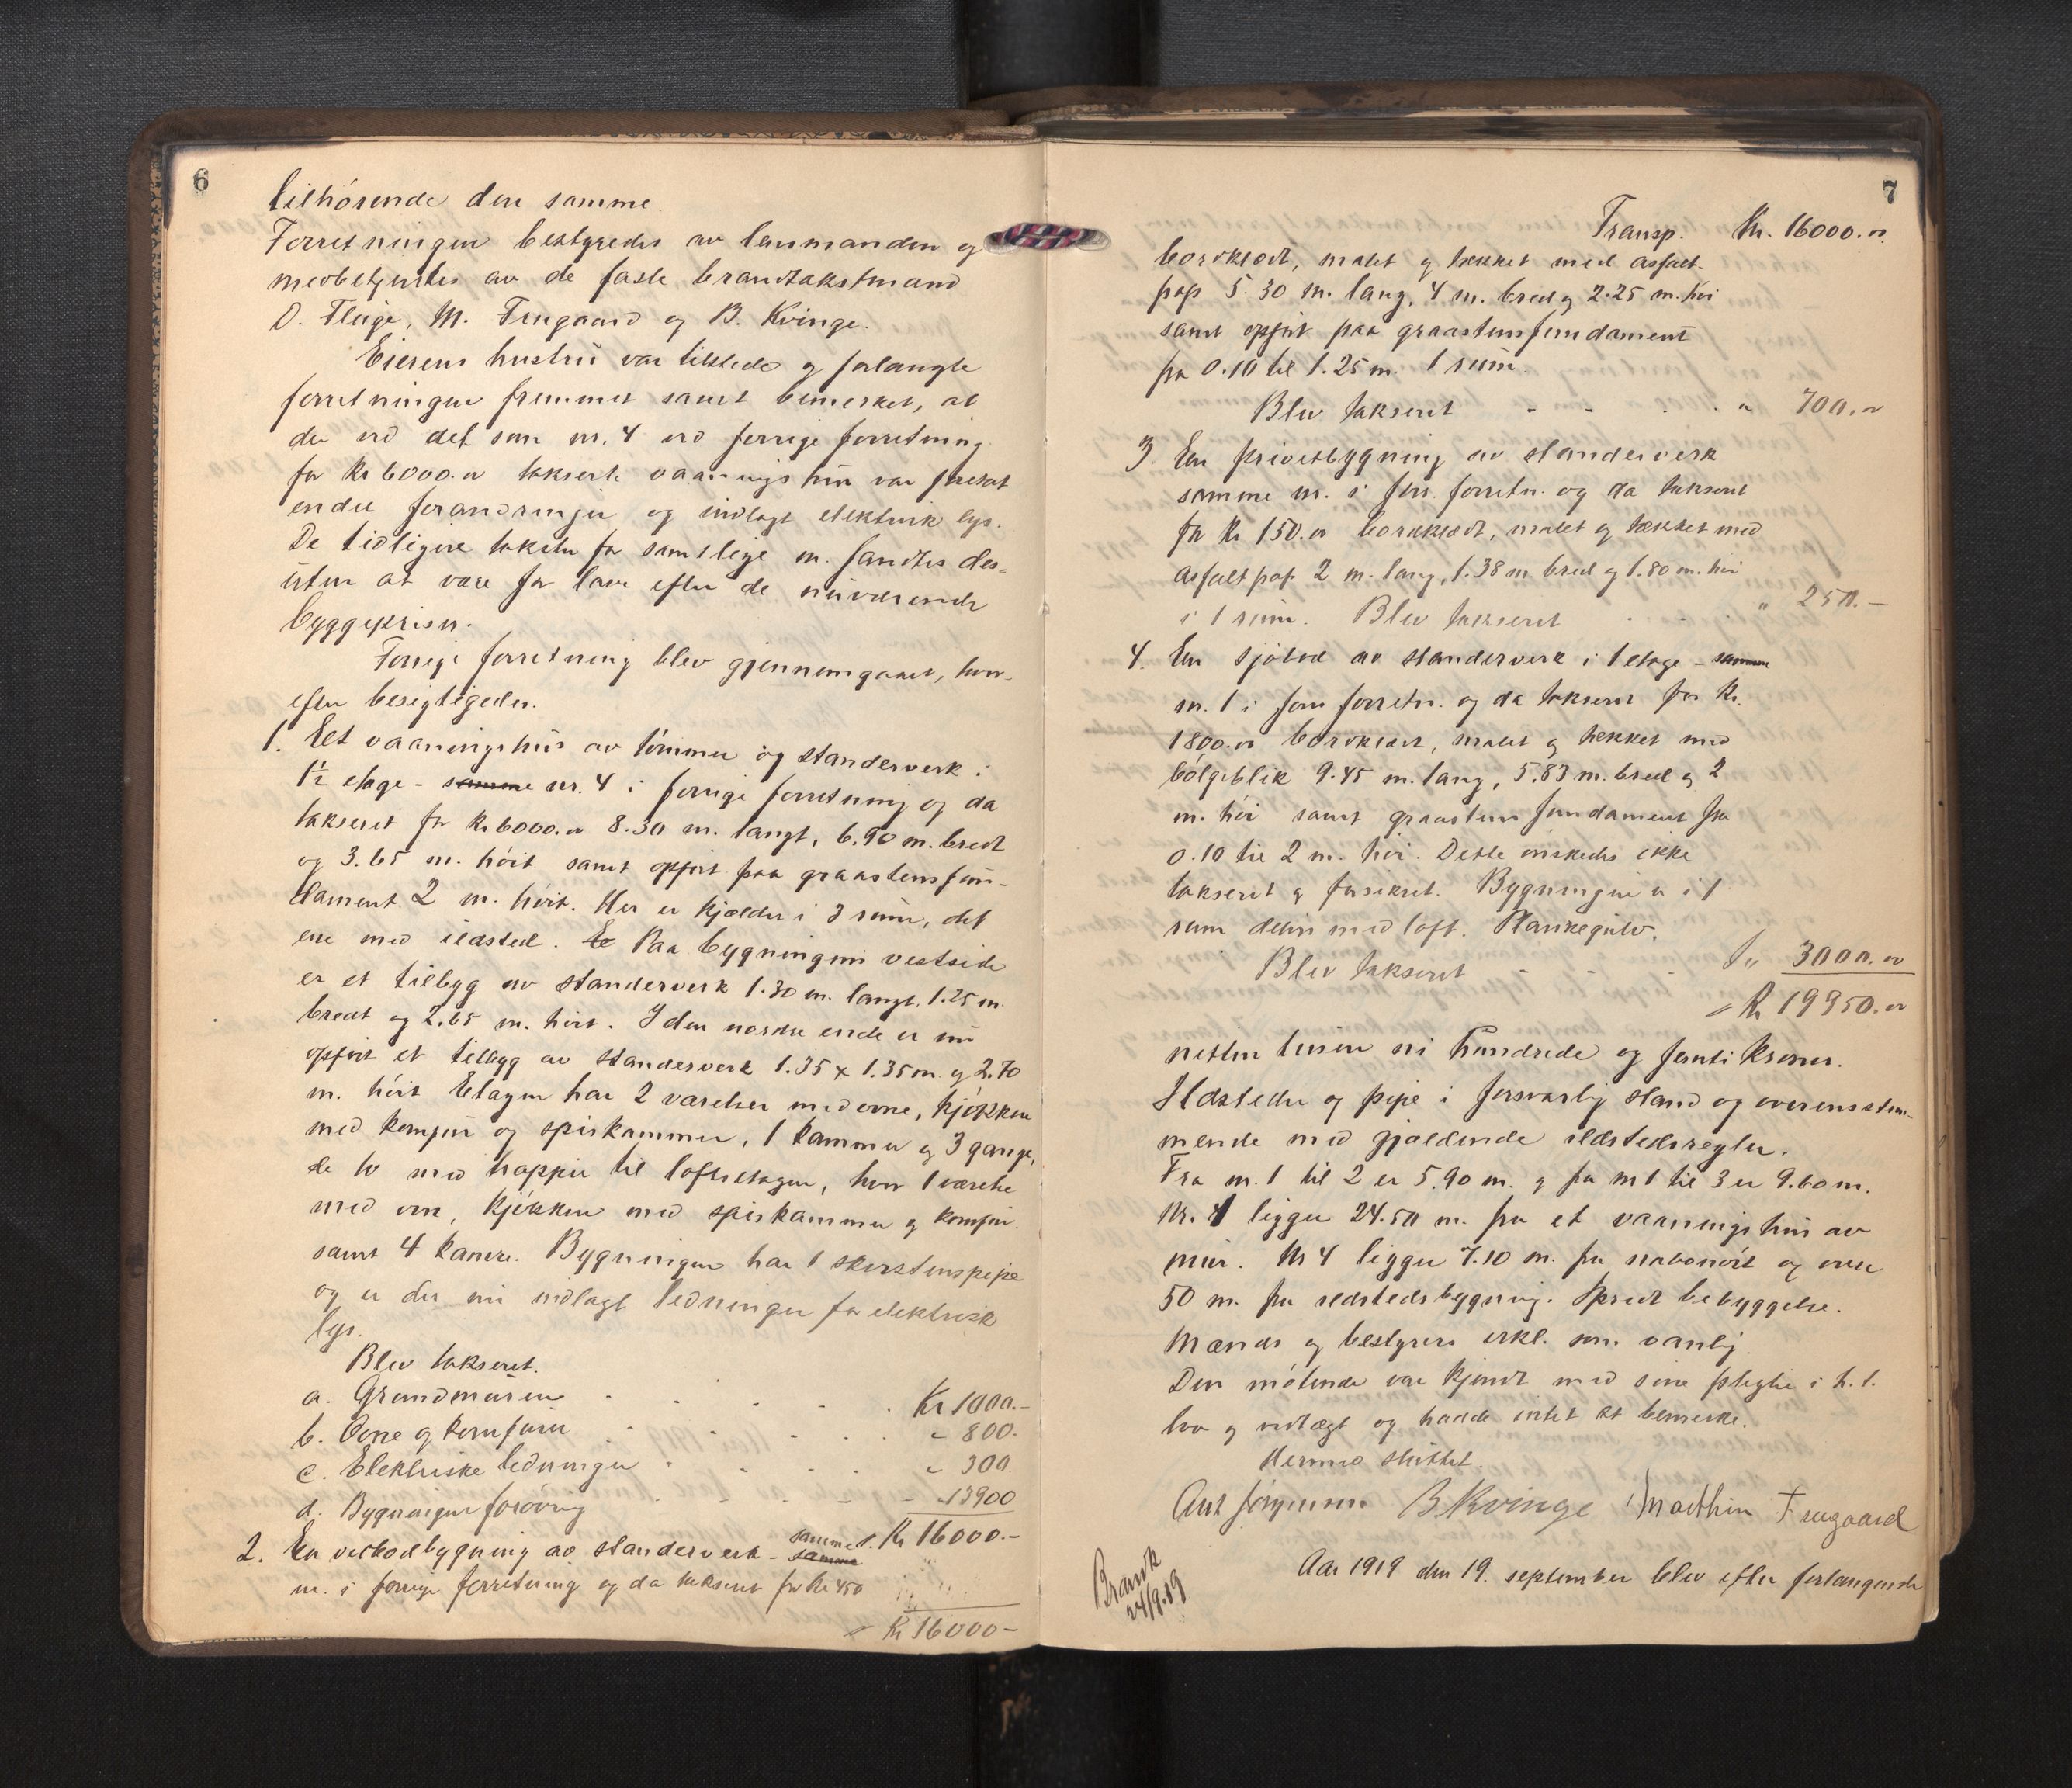 6
tilhørende den samme.
Forretningen bestyredes av lensmanden og
medbetjentes av de faste brandtakstmænd
O. Fleige, M. Frugaard og B. Kvinge.
Eierens hustru var tilstede og forlangte
forretningen fremmet samt bemerket, at
der ved det som nr. 4 ved forrige forretning
for kr 6000.00 takserte vaaningshus var foretat
endel forandringer og indlagt elektrisk lys.
De tidligere takster for samtlige nr. fandtes des-
uten at være for lave efter de nuværende
byggepriser.
Forrige forretning blev gjennemgaaet, hvor-
efter besigtigedes.
1. Et vaaningshus av tømmer og standerverk i
1½ etage - samme nr. 4 i forrige forretning og da
takseret for kr 6000.00 8.30 m. langt, 6.90 m. bredt
og 3.65 m. høit samt opført paa graastensfun-
dament 2 m. høit. Her er kjælder i 3 rum, det
ene med ildsted. Paa bygningens vestside
er et tilbyg av standerverk 1.30 m. langt. 1.25 m.
bredt og 2.65 m. høit. I den nordre ende er nu
opført et tilbygg av standerverk 1.35 x 1.35 m. og 2.70
m. høit Etagen har 2 værelser med ovne, kjøkken
med komfur og spiskammer, 1 kammer og 3 gange,
de to med trapper til loftsetagen, hvor 1 værelse
med ovn, kjøkken med spiskammer og komfur
samt 4 kamre. Bygningen har 1 skorstenspipe
og er der nu indlagt ledninger for elektrisk
lys.
Blev takseret.
a. Grundmuren . . . . Kr 1000.-
b. Ovne og komfurer . . . . " 800.-
c. Elektriske ledninger . . . . " 300
d. Bygningen forøvrig - - - - " 13900
s. Kr 16000.-
2. En vedbodbygning av standerverk - samme samme
nr. i forrige forretning og da takseret for kr 450
Kr 16000-
7
Transp. Kr. 16000.00
bordklædt, malet og tækket med asfalt-
pap 5.30 m. lang, 4 m. bred og 2.25 m. høi
samt opført paa graastensfundament
fra 0.10 til 1.25 m. 1 rum.
Blev takseret - - . . " 700.00
3. En privetbygning av standerverk
samme nr. i forr. forretn. og da takseret
for kr 150.00 bordklædt, malet og tækket med
asfaltpap 2 m. lang, 1.38 m. bred og 1.80 m. høi
i 1 rum. Blev takseret . . . " 250.-
4. En sjøbod av standerverk i 1 etage - samme
nr. 1 i forr forretn. og da takseret for kr.
1800.00 bordklædt, malet og tækket med
bølgeblik 9.45 m. lang, 5.83 m. bred og 2
m. høi samt graastens fundament fra
0.10 til 2 m. høi. Dette ønskedes ikke
takseret og forsikret. Bygningen er i 1
rum delvis med loft. Plankegulv.
Blev takseret - - - " 3000.00
Kr 19950.00
nitten tusen ni hundrede og femti kroner.
Ildsteder og pipe i forsvarlig stand og overensstem-
mende med gjældende ildstedsregler.
Fra nr. 1 til 2 er 5.90 m. og fra nr 1 til 3 er 9.60 m.
Nr. 1 ligger 24.50 m. fra et vaaningshus av
mur. Nr 4 ligger 7.10 m. fra nabonøst og over
50 m. fra ildstedsbygning. Spredt bebyggelse.
Mænds og bestyrers erkl. som vanlig.
Den møtende var kjendt med sine pligter i h. t.
lov og vedtægt og hadde intet at bemerke.
Hermed sluttet.
B Kvinge Marthin Frugaard
24/9.19
Aar 1919 den 19. september blev efter forlangende